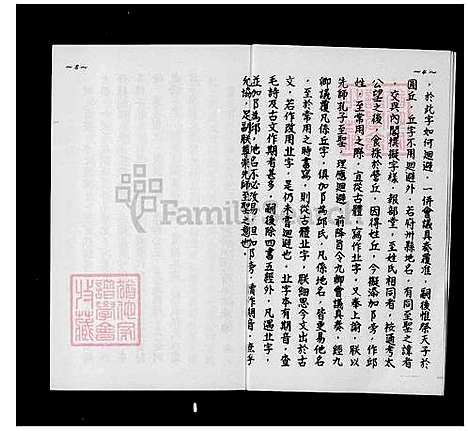 ～4～
，於此字如何迴避，一併會議具奏覆准，嗣後惟祭天子於
圜丘，丘字不用迴避外，若府州縣地名，有同至聖之諱者
，交與內閣撰擬字樣，報部堂，至姓氏相同者，按通考太
公望之後，食採於營丘，因得姓丘，今擬添加阝旁，作邱
姓，至常用之際，宜從古體，寫作北字，又奉上諭，朕以
先師孔子至聖，理應迴避，前降旨令九卿會議具奏，經九
卿議覆凡係丘字，俱加阝為邱氏，凡係地名，皆更易他名
，至於常用之時書寫，則從古體北字，朕細思今文出於古
文，若作改用北字，是仍未嘗迴避也，北字本有期音，查
毛詩及古文作期者甚多，嗣後除四書五經外，凡遇北字，
並加阝為邱，地名不必改易，但加阝旁，讀作期音，庶乎
允協，足副朕尊崇先師至聖之意也。
～5～
Famil